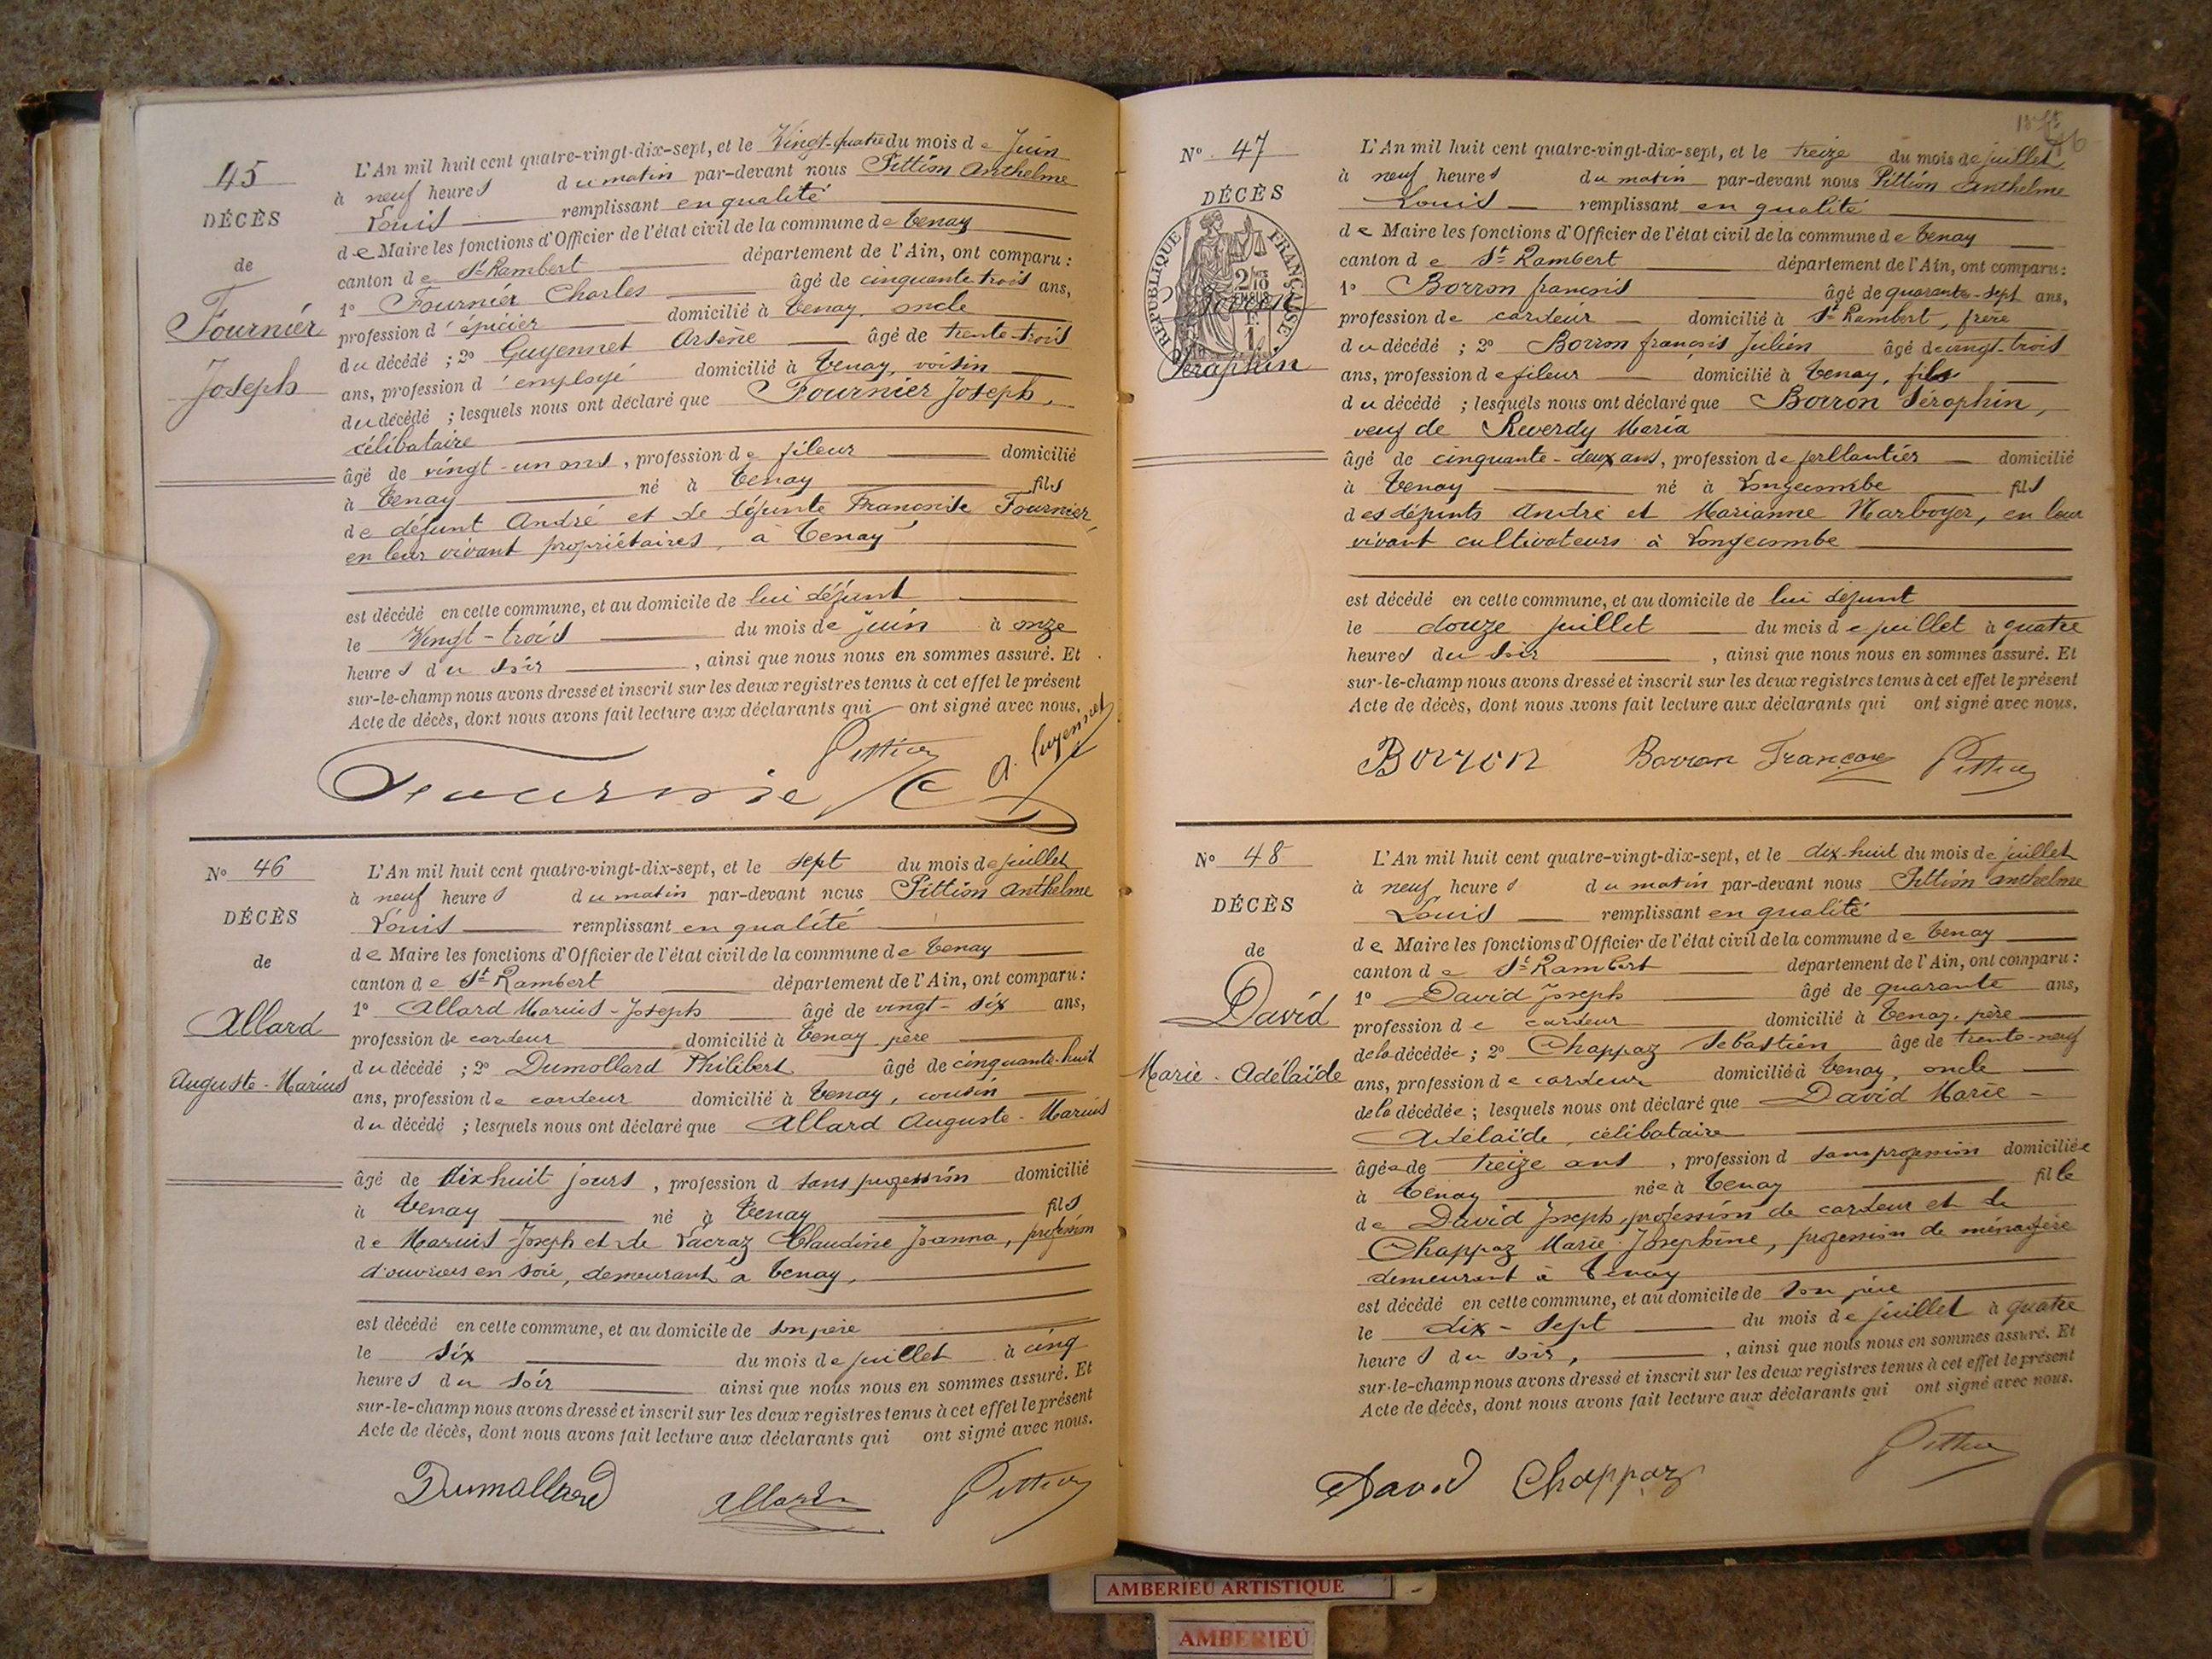 45
DÉCÈS
de
Fournier
Joseph
L'An mil huit cent quatre-vingt-dix-sept, et le Vingt-quatre du mois de Juin
à neuf heures du matin par-devant nous Pittion Anthelme
Louis remplissant en qualité
de Maire les fonctions d'Officier de l'état civil de la commune de Tenay
canton de St Rambert département de l'Ain, ont comparu :
1º Fournier Charles âgé de cinquante trois ans,
profession d'épicier domicilié à Tenay, oncle
du décédé ; 2º Guyennet Arsène âgé de trente-trois
ans, profession d'employé domicilié à Tenay, voisin
du décédé ; lesquels nous ont déclaré que Fournier Joseph,
célibataire
âgé de vingt-un ans, profession de fileur domicilié
à Tenay né à Tenay fils
de défunt André et de défunte Françoise Fournier,
en leur vivant propriétaires, à Tenay
est décédé en cette commune, et au domicile de lui défunt
le Vingt-trois du mois de juin à onze
heures du soir, ainsi que nous nous en sommes assuré. Et
sur-le-champ nous avons dressé et inscrit sur les deux registres tenus à cet effet le présent
Acte de décès, dont nous avons fait lecture aux déclarants qui ont signé avec nous.
Pittion A. Guyennet
Fournier C
Nº 46
DÉCÈS
de
Allard
Auguste-Marius
L'An mil huit cent quatre-vingt-dix-sept, et le sept du mois de juillet
à neuf heures du matin par-devant nous Pittion Anthelme
Louis remplissant en qualité
de Maire les fonctions d'Officier de l'état civil de la commune de Tenay
canton de St Rambert département de l'Ain, ont comparu :
1º Allard Marius-Joseph âgé de vingt-six ans,
profession de cardeur domicilié à Tenay père
du décédé ; 2º Dumollard Philibert âgé de cinquante-huit
ans, profession de cardeur domicilié à Tenay, cousin
du décédé ; lesquels nous ont déclaré que Allard Auguste-Marius
âgé de dix huit jours, profession d sans profession domicilié
à Tenay né à Tenay fils
de Marius-Joseph et de Lacraz Claudine Joanna, profession
d'ouvriers en soie, demeurant à Tenay,
est décédé en cette commune, et au domicile de son père
le six du mois de juillet à cinq
heures du soir ainsi que nous nous en sommes assuré. Et
sur-le-champ nous avons dressé et inscrit sur les deux registres tenus à cet effet le présent
Acte de décès, dont nous avons fait lecture aux déclarants qui ont signé avec nous.
Dumollard Allard Pittion
Nº 47
DÉCÈS
RÉPUBLIQUE FRANÇAISE
Séraphin
L'An mil huit cent quatre-vingt-dix-sept, et le treize du mois de juillet
à neuf heures du matin par-devant nous Pittion Anthelme
Louis remplissant en qualité
de Maire les fonctions d'Officier de l'état civil de la commune de Tenay
canton de St Rambert département de l'Ain, ont comparu :
1º Borron françois âgé de quarante-sept ans,
profession de cardeur domicilié à St Rambert, frère
du décédé ; 2º Borron françois Julien âgé de vingt-trois
ans, profession de fileur domicilié à Tenay, fils
du décédé ; lesquels nous ont déclaré que Borron Séraphin,
veuf de Reverdy Maria
âgé de cinquante-deux ans, profession de ferblantier domicilié
à Tenay né à Longecombe fils
des défunts André et Marianne Marboyer, en leur
vivant cultivateurs à Longecombe
est décédé en cette commune, et au domicile de lui défunt
le douze juillet du mois de juillet à quatre
heures du soir, ainsi que nous nous en sommes assuré. Et
sur-le-champ nous avons dressé et inscrit sur les deux registres tenus à cet effet le présent
Acte de décès, dont nous avons fait lecture aux déclarants qui ont signé avec nous.
Borron Borron Françoix Pittion
Nº 48
DÉCÈS
de
David
Marie-Adélaïde
L'An mil huit cent quatre-vingt-dix-sept, et le dix-huit du mois de juillet
à neuf heures du matin par-devant nous Pittion Anthelme
Louis remplissant en qualité
de Maire les fonctions d'Officier de l'état civil de la commune de Tenay
canton de St Rambert département de l'Ain, ont comparu :
1º David Joseph âgé de quarante ans,
profession de cardeur domicilié à Tenay, père
de la décédée ; 2º Chappaz Sébastien âgé de trente-neuf
ans, profession de cardeur domicilié à Tenay, oncle
de la décédée ; lesquels nous ont déclaré que David Marie-
Adélaïde, célibataire
âgée de treize ans, profession d sans profession domiciliée
à Tenay née à Tenay fille
de David Joseph, profession de cardeur et de
Chappaz Marie-Josephine, profession de ménagère
demeurant à Tenay
est décédé en cette commune, et au domicile de son père
le dix-sept du mois de juillet à quatre
heures du soir, ainsi que nous nous en sommes assuré. Et
sur-le-champ nous avons dressé et inscrit sur les deux registres tenus à cet effet le présent
Acte de décès, dont nous avons fait lecture aux déclarants qui ont signé avec nous.
David Chappaz Pittion
AMBERIEU ARTISTIQUE
AMBERIEU